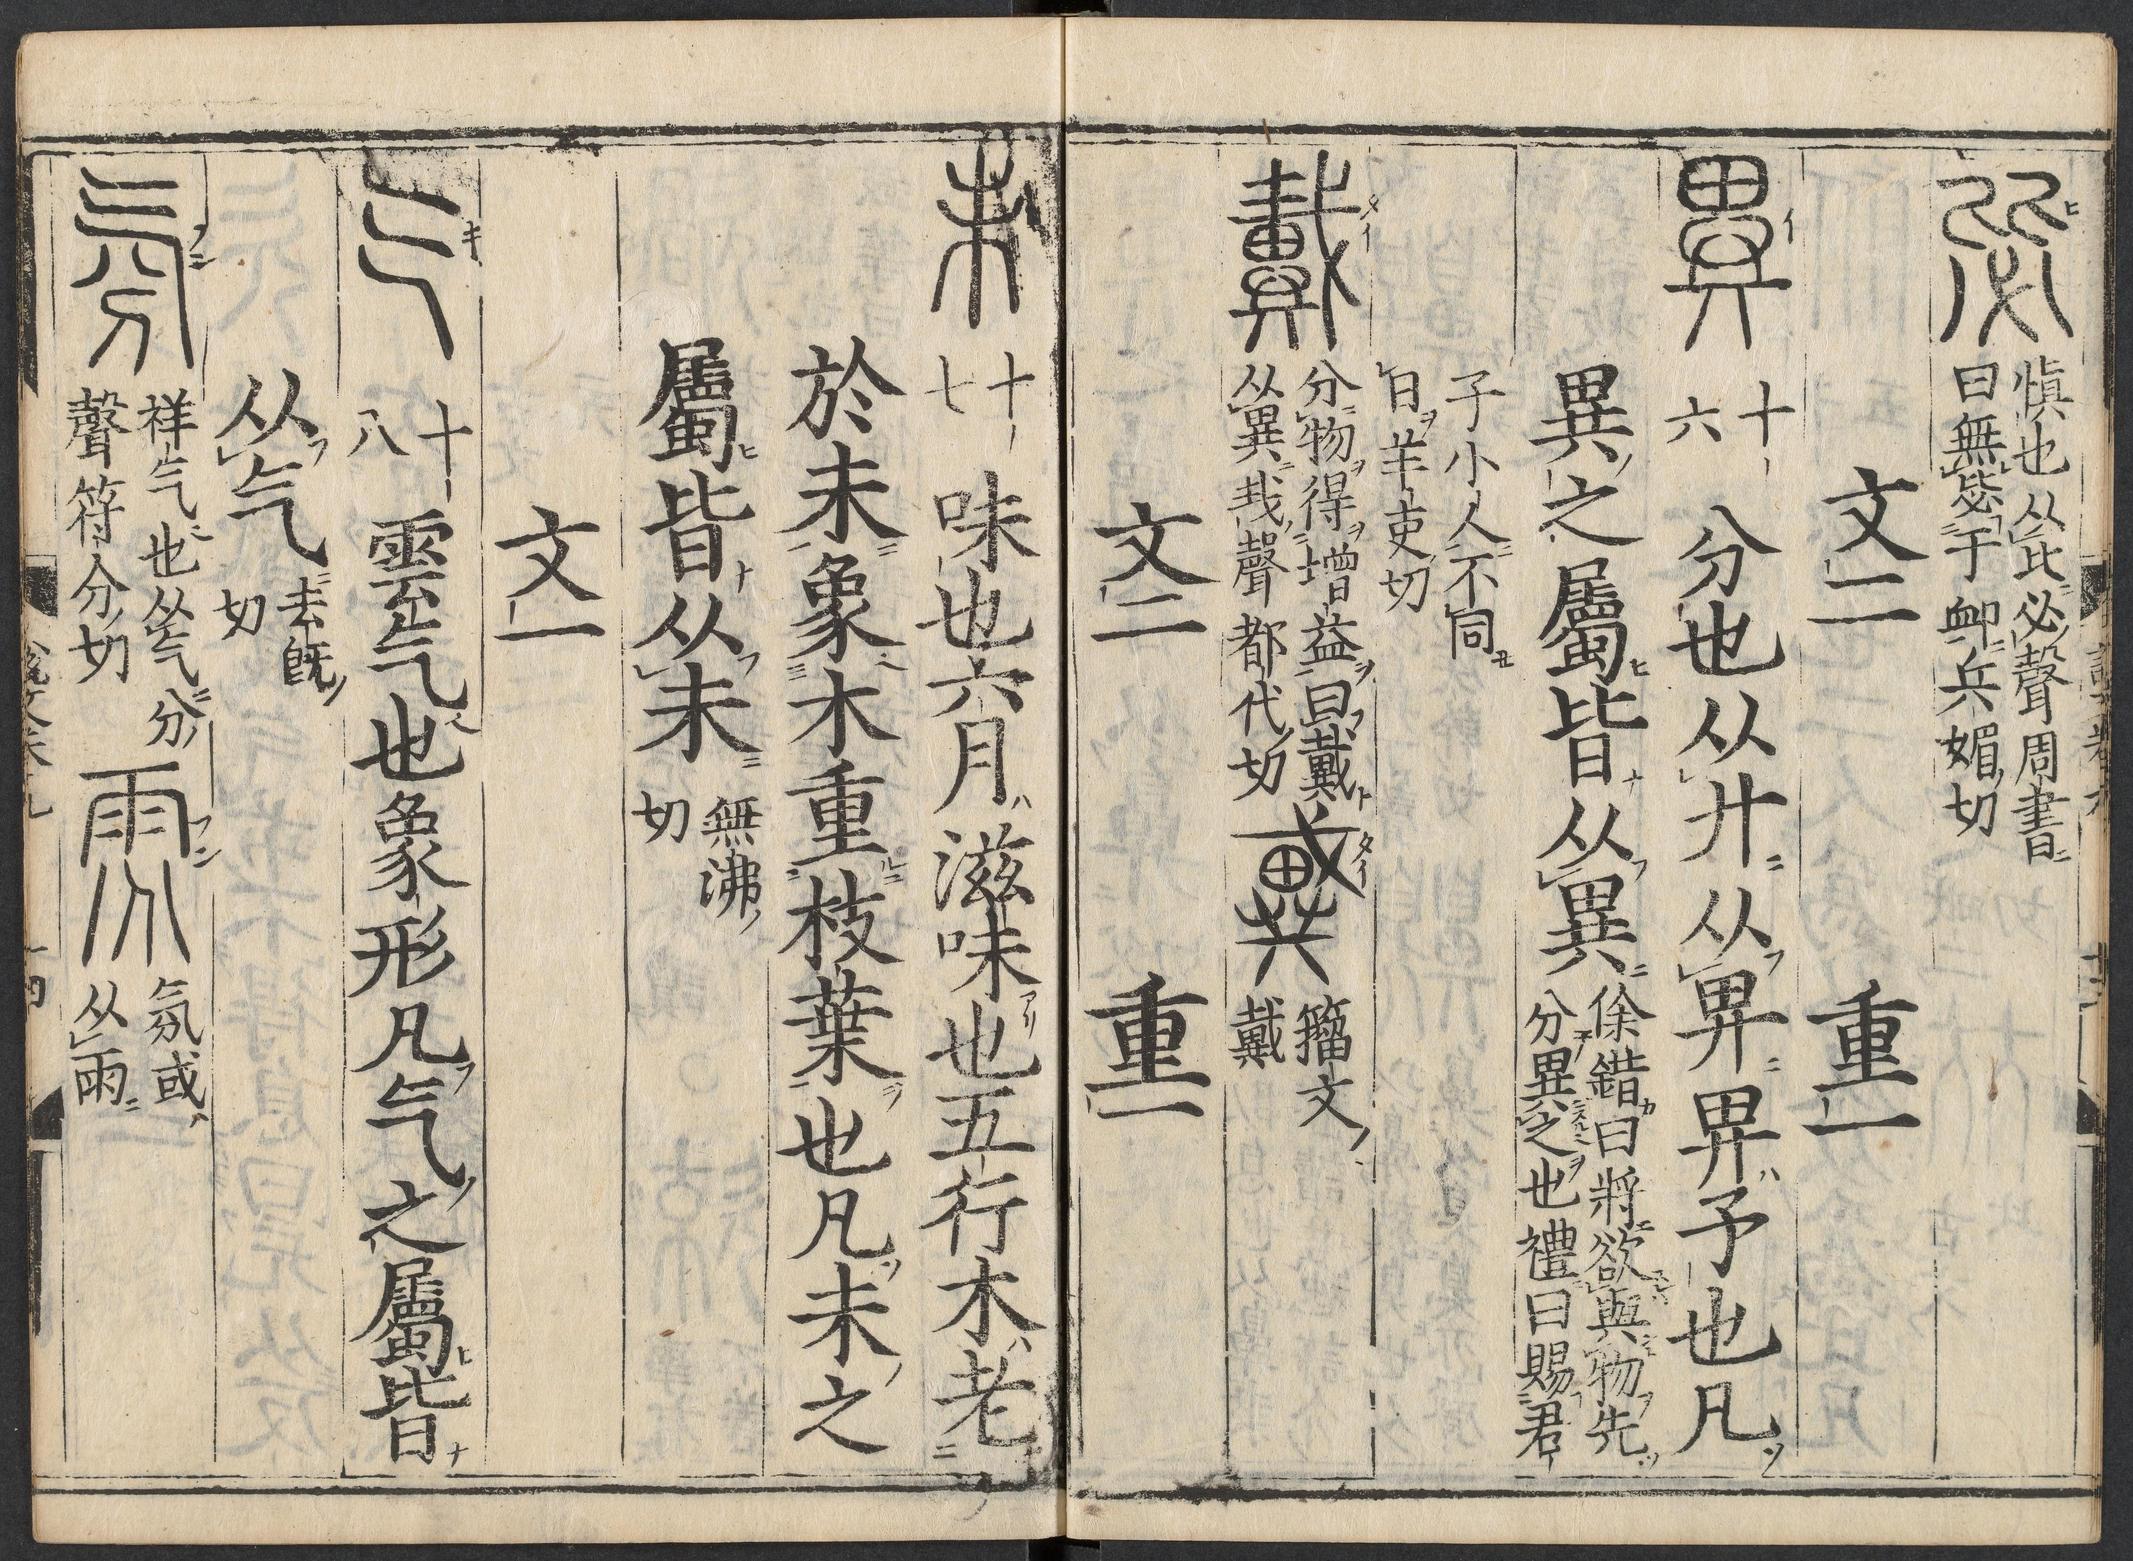 毖
慎也从比必聲周書
曰無毖于卹兵媚切
文二　重一
異
十六
分也从廾从畀畀予也凡
異之屬皆从異
徐鍇曰將欲與物先
分異之也禮曰賜君
子小人不同
日羊吏切
戴
分物得增益曰戴
从異𢦏聲都代切
籒文
戴
文二　重一
未
十七
味也六月滋味也五行木老
於未象木重枝葉也凡未之
屬皆从未
無沸
切
文一
气
十八
雲气也象形凡气之屬皆
从气
去旣
切
氛
祥气也从气分
聲符分切
雰
氛或
从雨